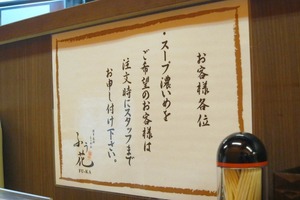 お客様各位
・スープ濃いめを
ご希望のお客様は
注文時にスタッフまで
お申し付け下さい。